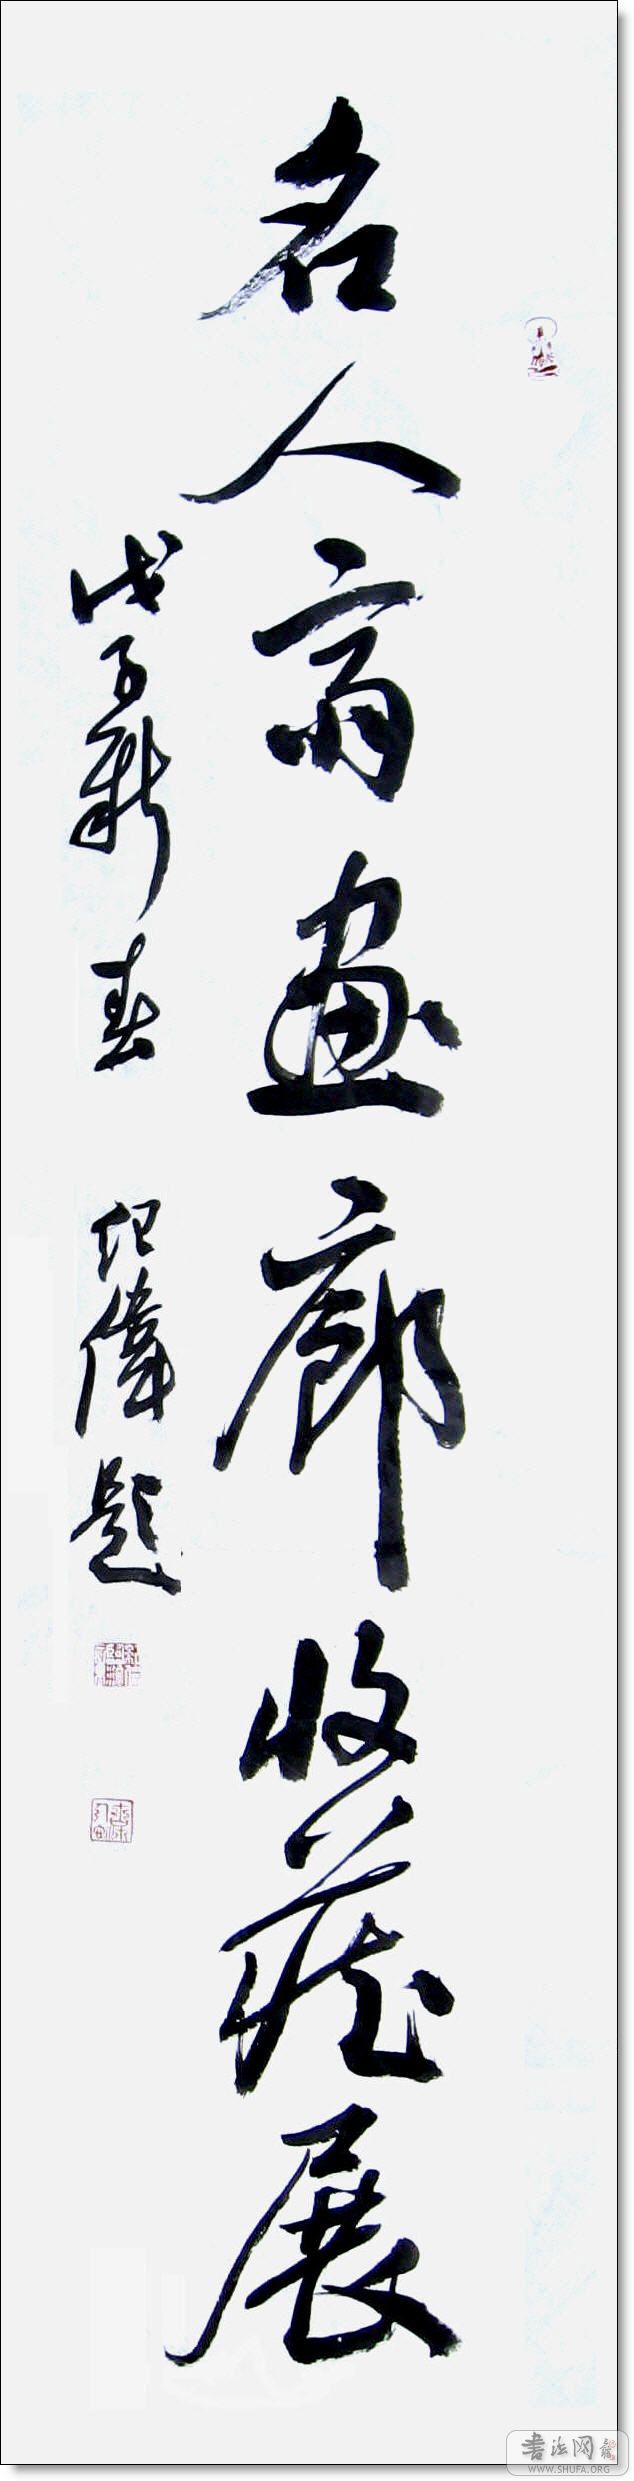 名人斋畫廊收藏展
戊子新春 纪偉题
書法网
WWW.SHUFA.ORG